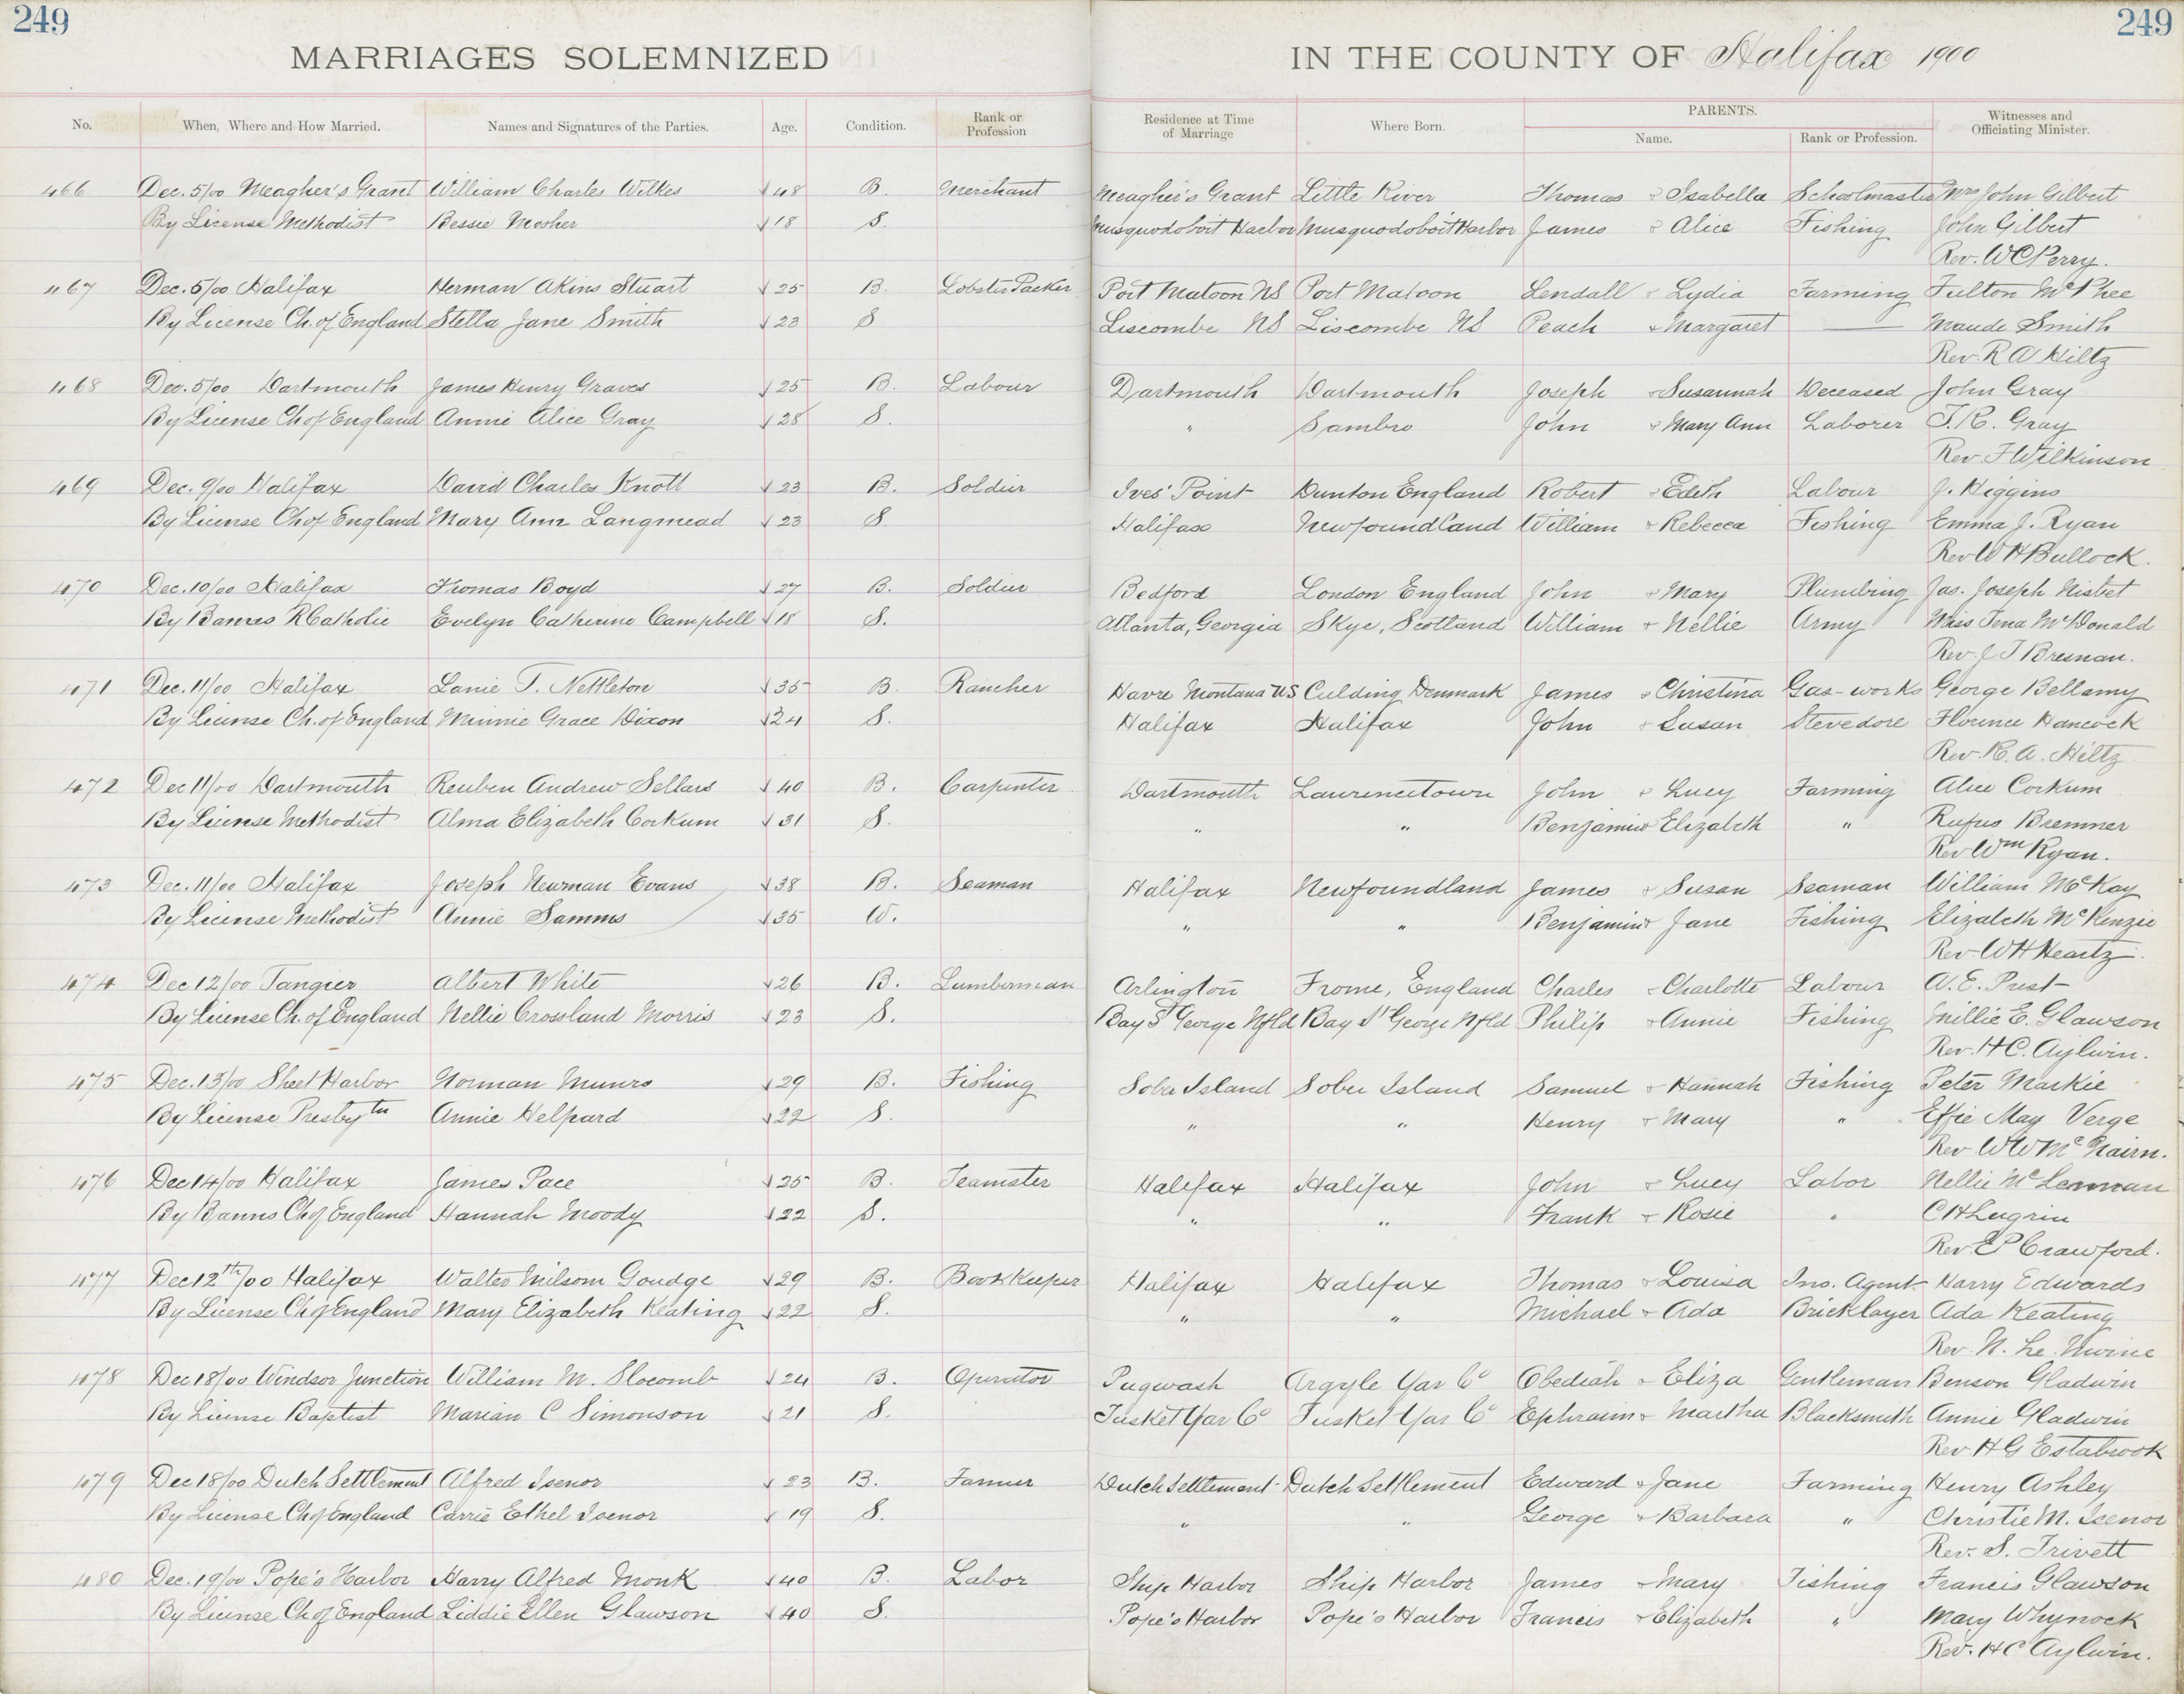 249 249
MARRIAGES SOLEMNIZED IN THE COUNTY OF Halifax 1900
No. When, Where and How Married. Names and Signatures of the Parties. Age. Condition. Rank or Profession Residence at Time of Marriage Where Born. PARENTS. Name. Rank or Profession. Witnesses and Officiating Minister.
466 Dec. 5/00 Meagher's Grant William Charles Wilkes 48 B. Merchant Meagher's Grant Little River Thomas & Isabella Schoolmaster Mrs John Gilbert
By License Methodist Bessie Mosher 18 S. Musquodoboit Harbor Musquodoboit Harbor James & Alice Fishing John Gilbert
Rev. W C Perry.
467 Dec. 5/00 Halifax Herman Akins Stuart 25 B. Lobster Packer Port Matoon NS Port Matoon Lendall & Lydia Farming Fulton McPhee
By License Ch. of England Stella Jane Smith 23 S Liscombe NS Liscombe NS Peach & Margaret — Maude Smith
Rev. R A Hiltz
468 Dec. 5/00 Dartmouth James Henry Graves 25 B. Labour Dartmouth Dartmouth Joseph & Susannah Deceased John Gray
By License Ch of England Annie Alice Gray 28 S. " Sambro John & Mary Ann Laborer T. R. Gray
Rev. F Wilkinson
469 Dec. 9/00 Halifax David Charles Knott 23 B. Soldier Ives' Point Dunton England Robert & Edith Labour J. Higgins
By License Ch of England Mary Ann Langmead 23 S. Halifax Newfoundland William & Rebecca Fishing Emma J. Ryan
Rev W H Bullock.
470 Dec. 10/00 Halifax Thomas Boyd 27 B. Soldier Bedford London England John & Mary Plumbing Jas. Joseph Nisbet
By Banns R Catholic Evelyn Catherine Campbell 18 S. Atlanta, Georgia Skye, Scotland William & Nellie Army Miss Tena McDonald
Rev. J T Bresnan.
471 Dec. 11/00 Halifax Lanie T. Nettleton 35 B. Rancher Havre Montana US Culding Denmark James & Christina Gas-works George Bellamy
By License Ch. of England Minnie Grace Dixon 24 S. Halifax Halifax John & Susan Stevedore Florence Hancock
Rev. R. A. Hiltz
472 Dec 11/00 Dartmouth Reuben Andrew Sellars 40 B. Carpenter Dartmouth Lawrencetown John & Lucy Farming Alice Corkum
By License Methodist Alma Elizabeth Corkum 31 S. " " Benjamin & Elizabeth " Rufus Bremner
Rev Wm Ryan.
473 Dec. 11/00 Halifax Joseph Newman Evans 38 B. Seaman Halifax Newfoundland James & Susan Seaman William McKay
By License Methodist Annie Samms 35 W. " " Benjamin & Jane Fishing Elizabeth McKenzie
Rev W H Heartz.
474 Dec 12/00 Tangier Albert White 26 B. Lumberman Arlington Frome, England Charles & Charlotte Labour A. E. Prest
By License Ch. of England Nellie Crossland Morris 23 S. Bay St George Nfld Bay St George Nfld Philip & Annie Fishing Millie E. Glawson
Rev. H C. Aylwin.
475 Dec. 13/00 Sheet Harbor Norman Munro 29 B. Fishing Sober Island Sober Island Samuel & Hannah Fishing Peter Markie
By License Presbytn Annie Helpard 22 S. " " Henry & Mary " Effie May Verge
Rev W W McNairn.
476 Dec 14/00 Halifax James Pace 25 B. Teamster Halifax Halifax John & Lucy Labor Nellie McLennan
By Banns Ch of England Hannah Moody 22 S. " " Frank & Rosie " C H Lugrin
Rev. E P Crawford.
477 Dec 12th/00 Halifax Walter Milsom Goudge 29 B. Book Keeper Halifax Halifax Thomas & Louisa Ins. Agent Harry Edwards
By License Ch of England Mary Elizabeth Keating 22 S. " " Michael & Ada Bricklayer Ada Keating
Rev. N. Le
478 Dec 18/00 Windsor Junction William M. Slocomb 24 B. Operator Pugwash Argyle Yar Co Obediah & Eliza Gentleman Benson Gladwin
By License Baptist Marian C Simonson 21 S. Tusket Yar Co Tusket Yar Co Ephraim & Martha Blacksmith Annie Gladwin
Rev H G Estabrook
479 Dec 18/00 Dutch Settlement Alfred Isenor 23 B. Farmer Dutch Settlement Dutch Settlement Edward & Jane Farming Henry Ashley
By License Ch of England Carrie Ethel Isenor 19 S. " " George & Barbara " Christie M. Isenor
Rev. S. Trivett
480 Dec. 19/00 Pope's Harbor Harry Alfred Monk 40 B. Labor Ship Harbor Ship Harbor James & Mary Fishing Francis Glawson
By License Ch of England Liddie Ellen Glawson 40 S. Pope's Harbor Pope's Harbor Francis & Elizabeth " Mary Whynock
Rev. H C Aylwin.